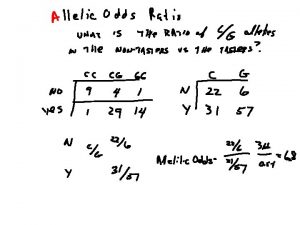 Allelic Odds Ratio
WHAT IS THE RATIO OF C/G alleles
IN THE NONTASTERS VS THE TASTERS?
CC CG GG
NO 9 4 1
Yes 1 29 14
C G
N 22 6
Y 31 57
N C/G 22/6
Y 31/57
Allelic Odds = 22/6 / 31/57 = 6.8